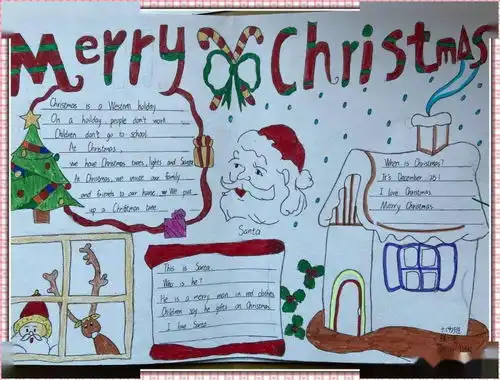 Merry Christmas
Christmas is a Western holiday.
On a holiday, people don't work.
Children don't go to school.
At Christmas,
we have Christmas trees, lights and Santa.
At Christmas, we invite our family
and friends to our home. We put
up a Christmas tree.
Santa
When is Christmas?
It's December 25!
I love Christmas.
Merry Christmas.
This is Santa.
Who is he?
He is a merry man in red clothes.
Children say he gifts on Christmas.
I love Santa.